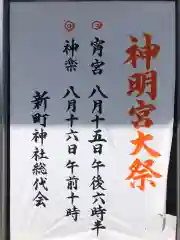 神明宮大祭
宵宮 八月十五日午後六時半
神楽 八月十六日午前十時
新町神社総代会